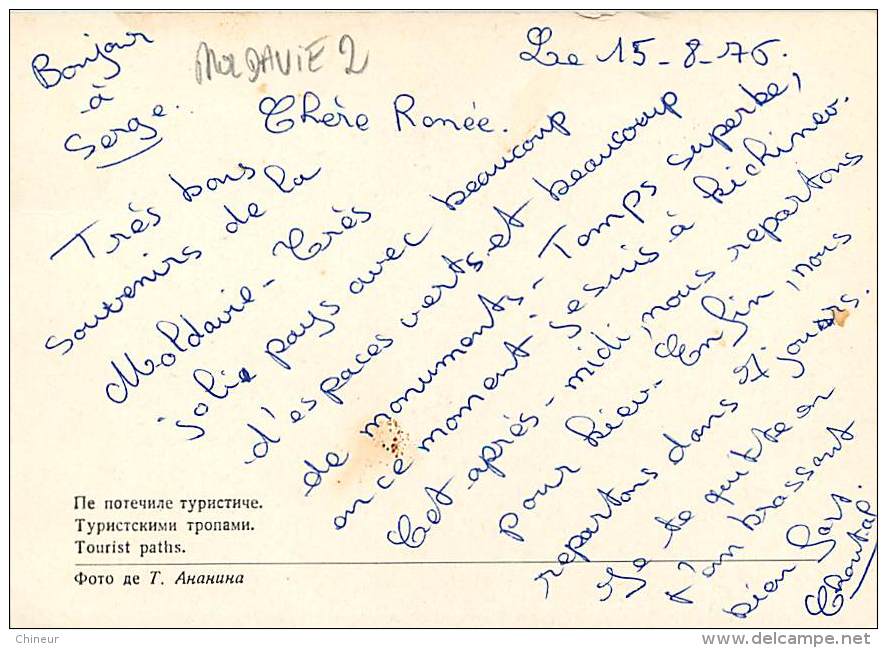 Bonjour
à
Serge.
MOLDAVIE 2
Le 15-8-76.
Chère Renée.
Très bons
souvenirs de la
Moldavie - Très
jolie pays avec beaucoup
d'espaces verts et beaucoup
de monuments - Temps superbe,
en ce moment je suis à Kichinev.
Cet après-midi, nous repartons
pour Kiev. Enfin, nous
repartons dans 7 jours.
Je te quitte en
t'embrassant
bien fort.
Chantal
Пе потечиле туристиче.
Туристскими тропами.
Tourist paths.
Фото де Т. Ананина
Chineur
delcampe.net